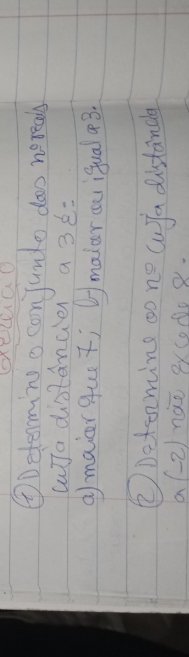 ① Determine o conjunto dos nº reais
cuja distância a 3 é:
a) maior que 7; b) maior ou igual a 3.
② Determine os nº cuja distância
a (-2) não excede 8.